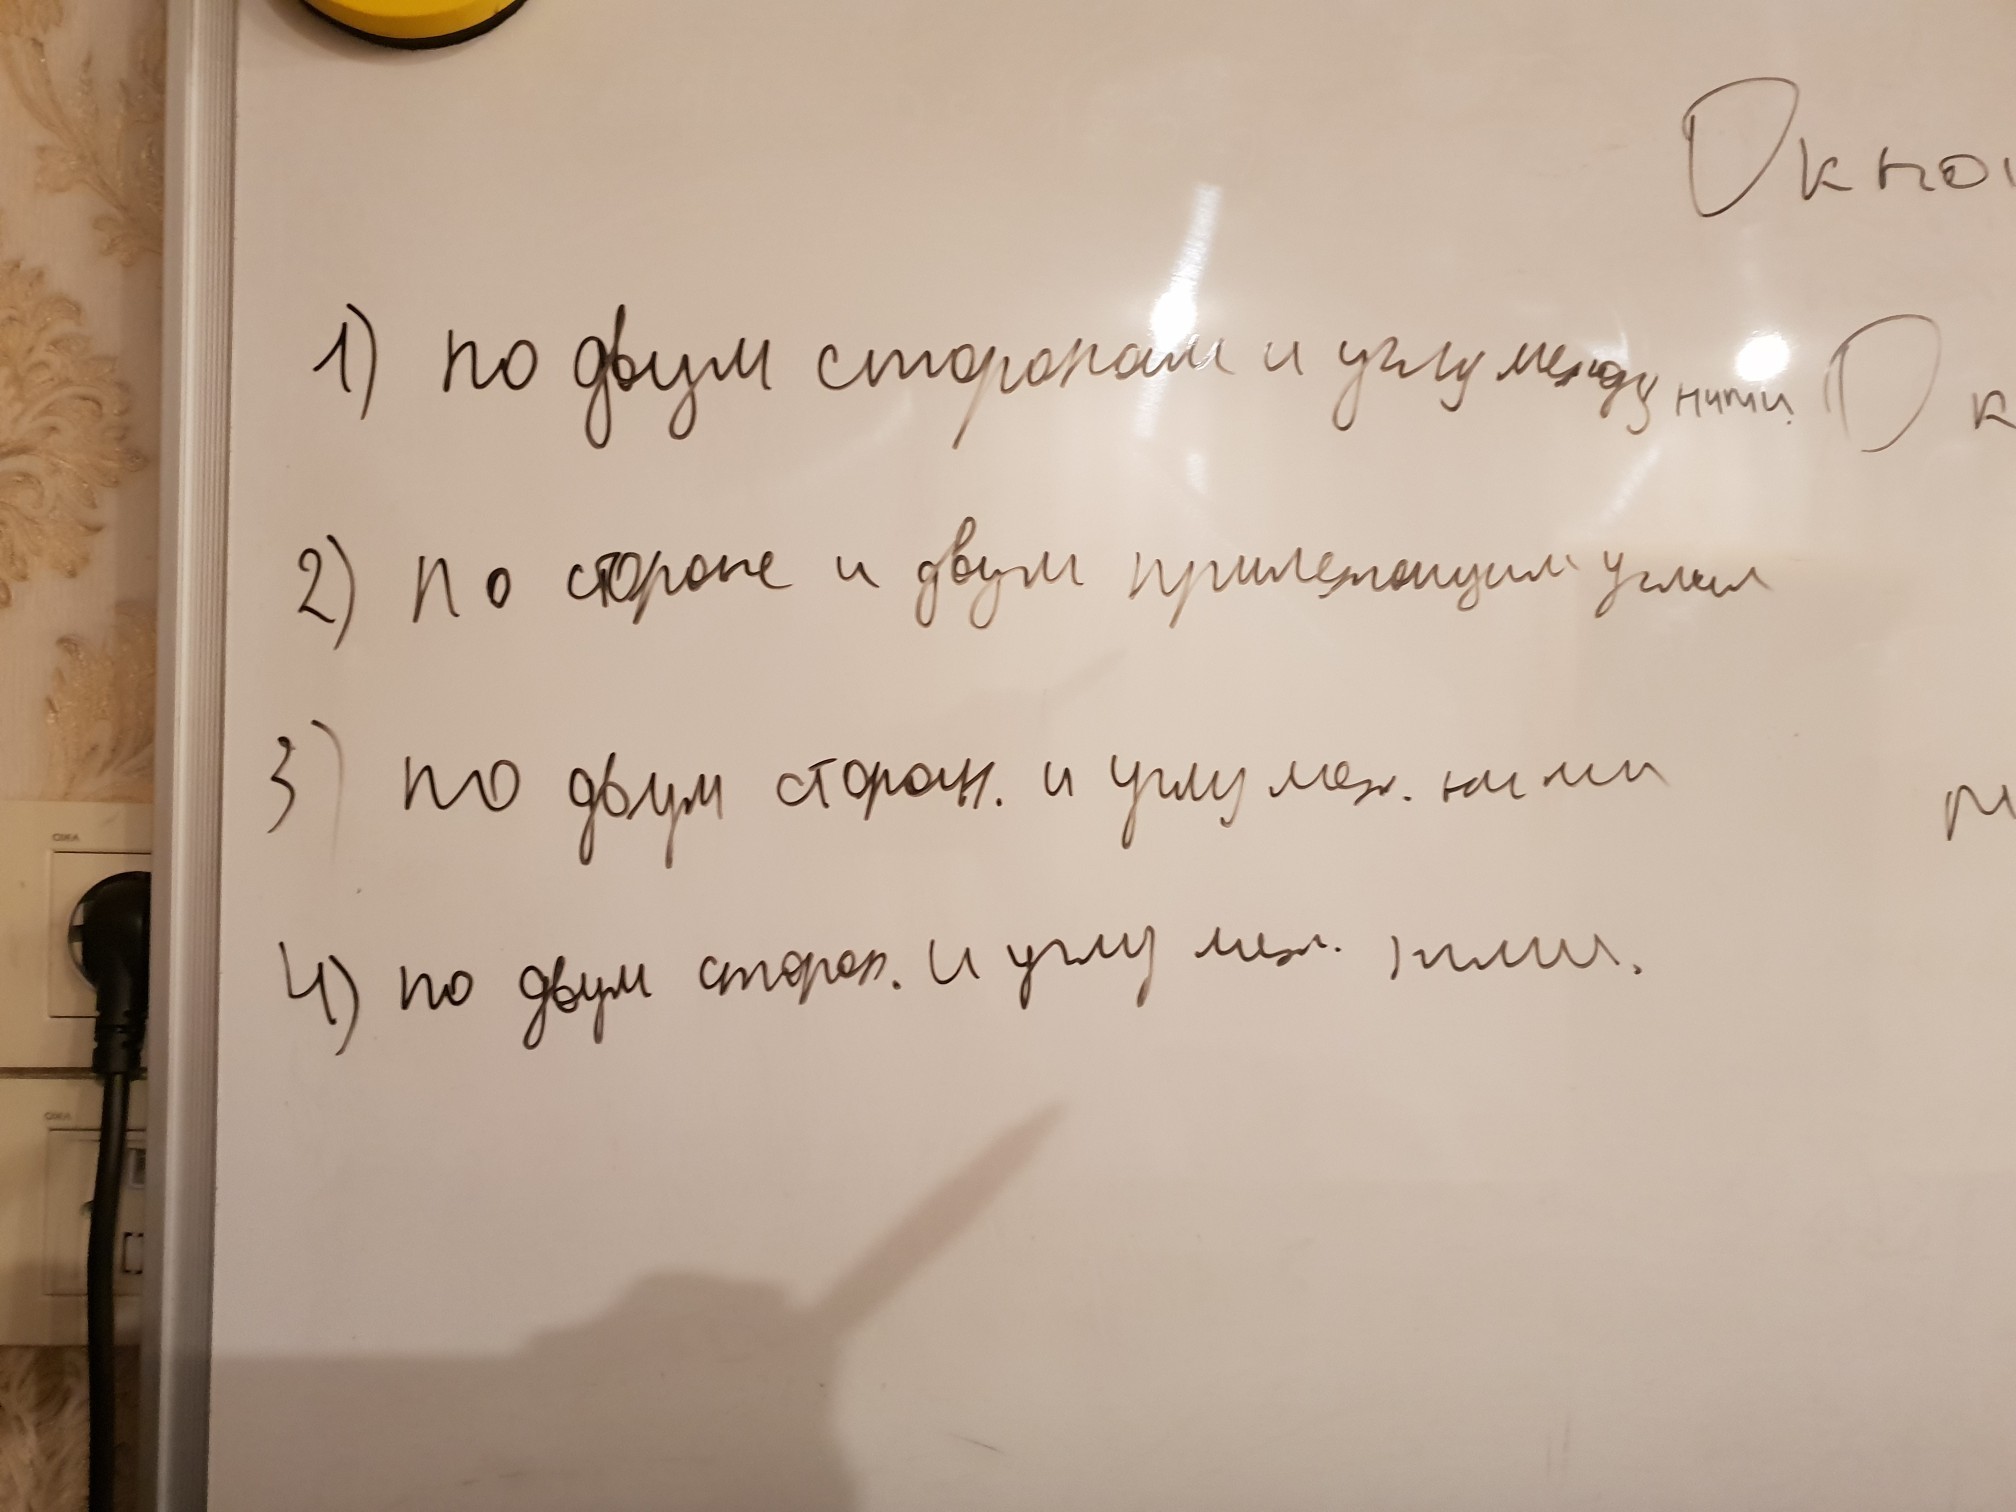 Окно
1) по двум сторонам и углу между ними. О к
2) по стороне и двум прилежащим углам
3) по двум сторон. и углу меж. ними
4) по двум сторон. и углу меж. ними.